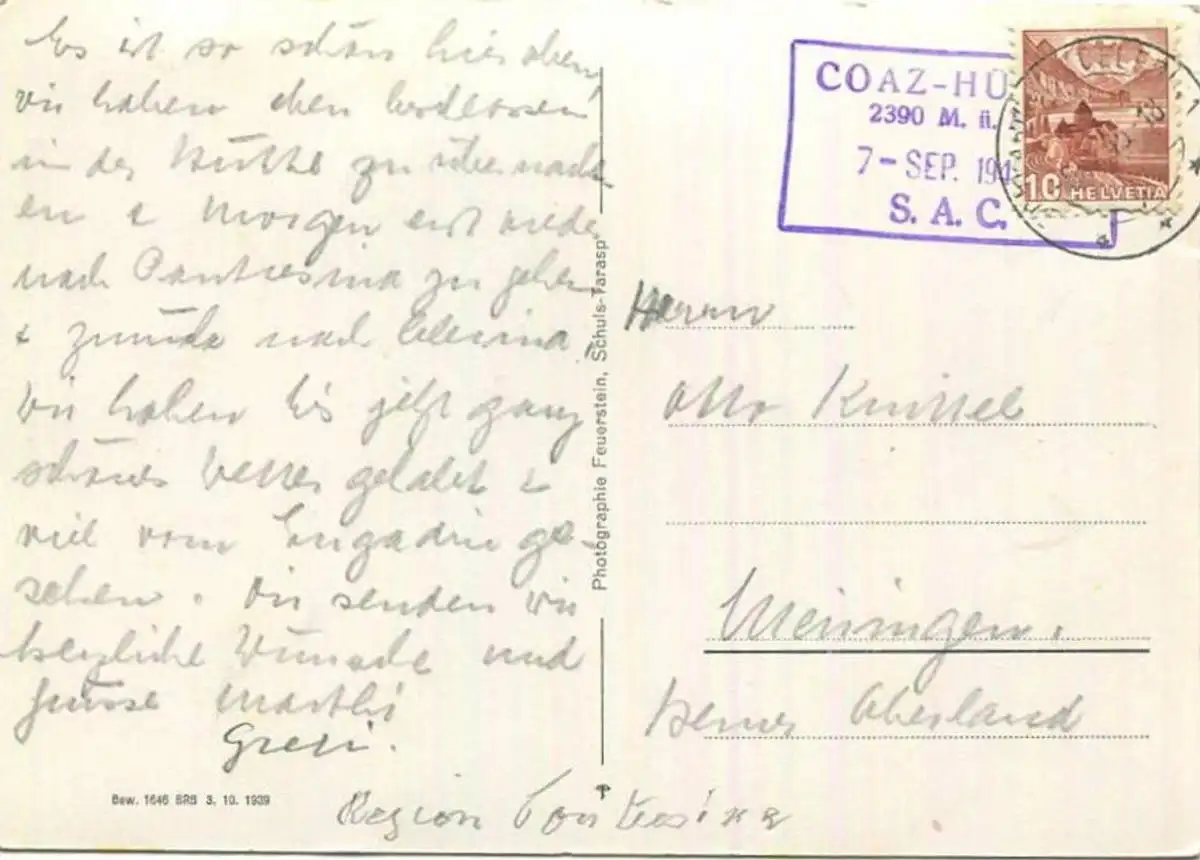 Es ist so schön hier oben,
wir haben eben beschlossen
in der Hütte zu übernach-
en & Morgen erst wieder
nach Pontresina zu gehen
& zurück nach Celerina.
Wir haben bis jetzt ganz
schönes Wetter gehabt &
viel vom Engadin ge-
sehen. Dir senden wir
herzliche Wünsche und
Grüsse Marthi
Greti.
Bew. 1646 BRB 3. 10. 1939
Photographie Feuerstein, Schuls-Tarasp
COAZ-HÜ
2390 M. ü.
7-SEP. 194
S. A. C.
10 HELVETIA
Herrn
Otto
Meiringen.
Berner Oberland
Region Pontresina